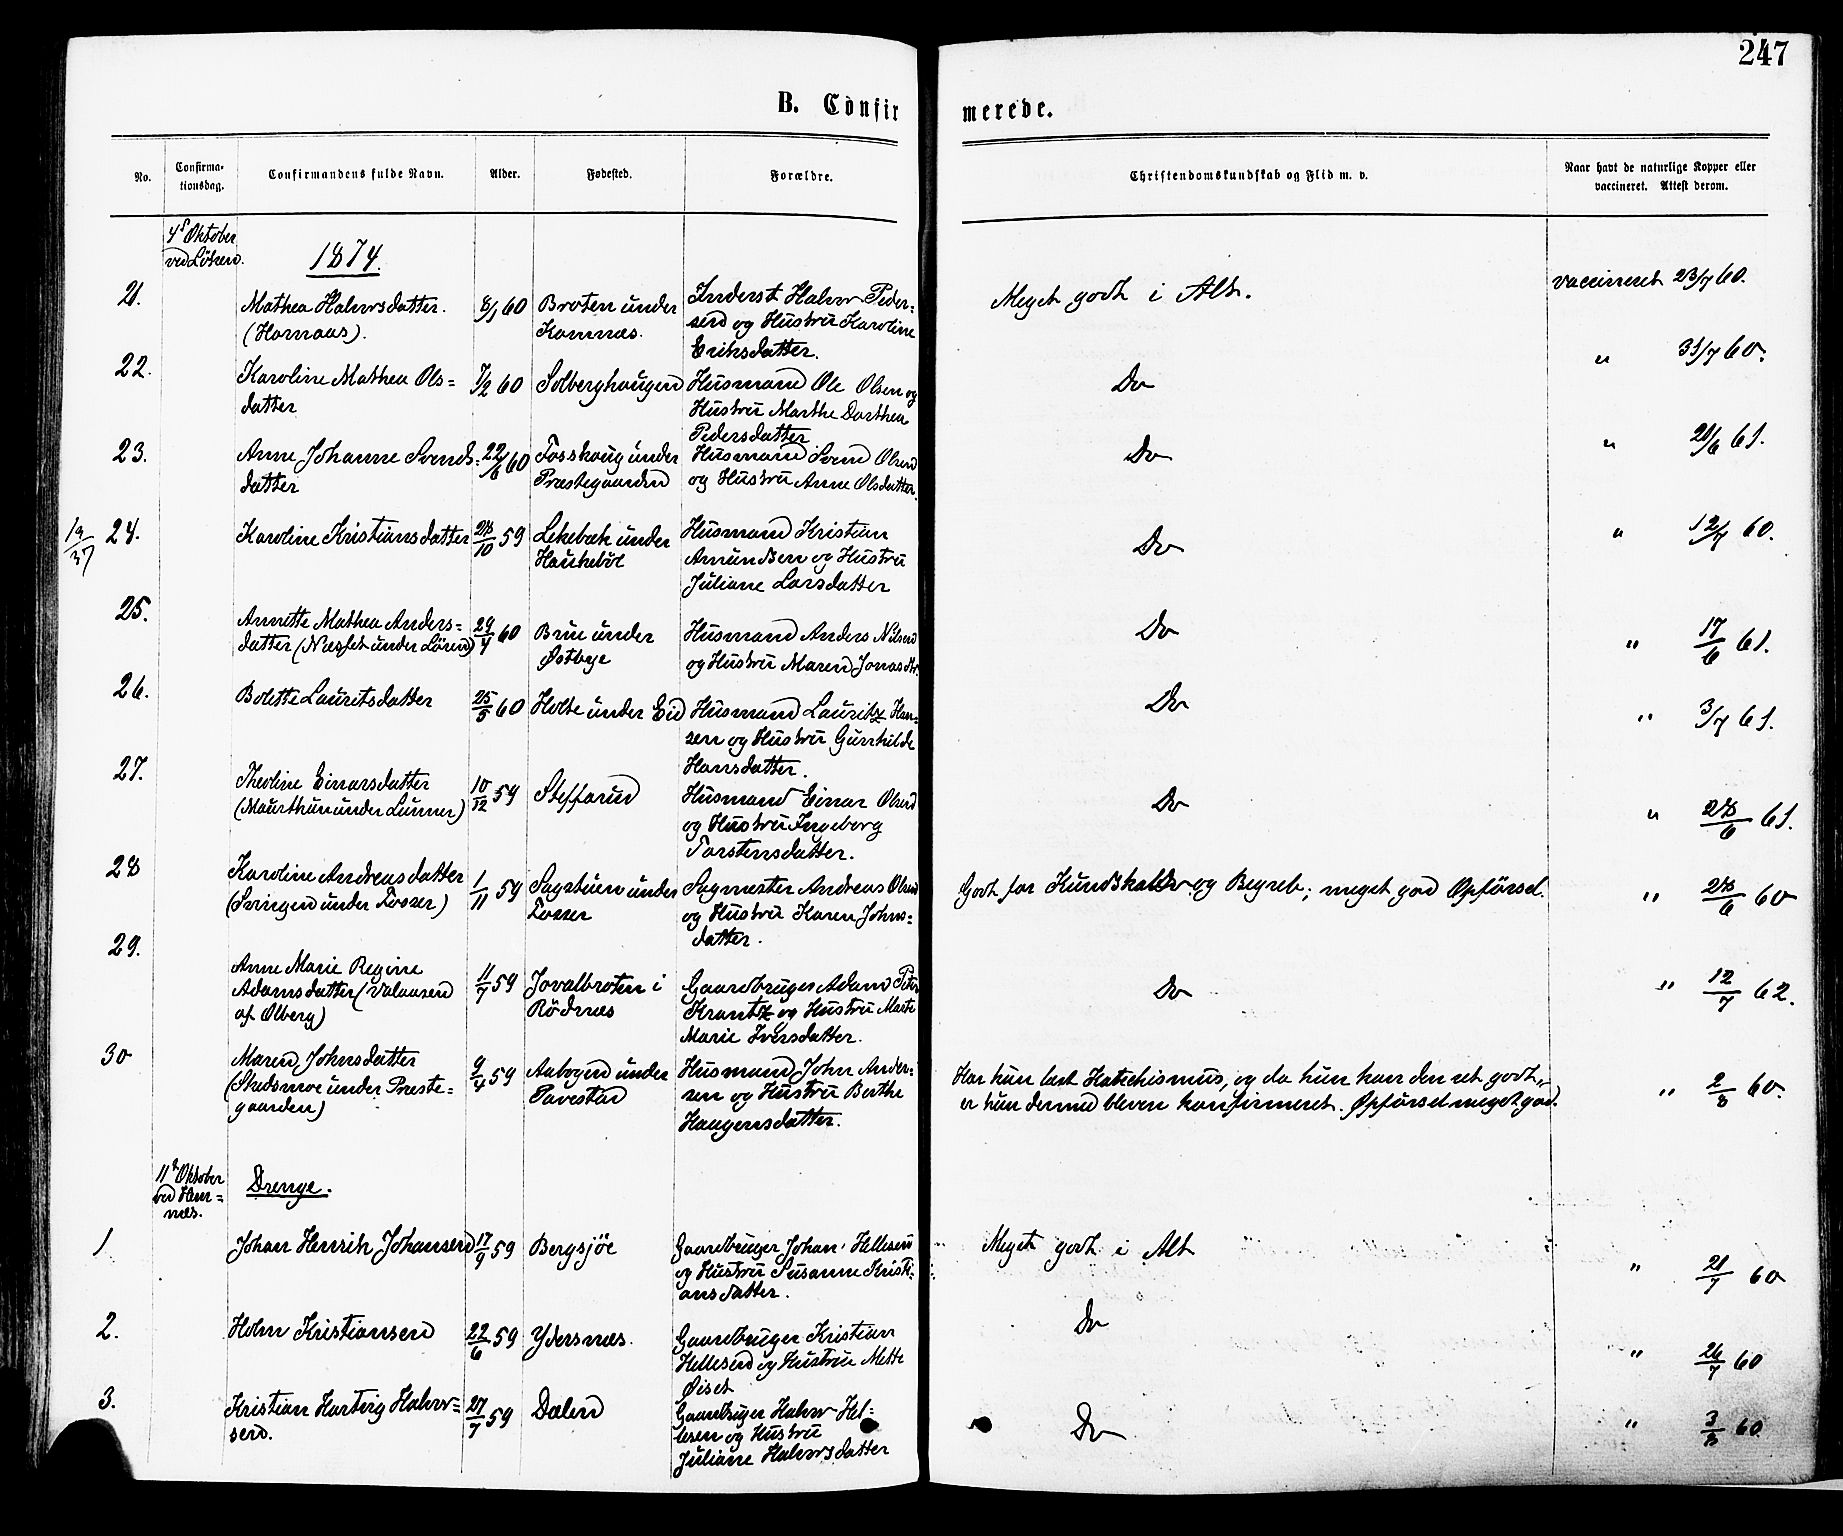 247
B. Confir merede.
No. Confirma-
tionsdag. Confirmandens fulde Navn. Alder. Fødested. Forældre. Christendomskundskab og Flid m. v. Naar havt de naturlige Kopper eller
vaccineret. Attest derom.
4de Oktober
ved Løken. 1874.
21. Mathea Halvorsdatter.
(Hornaas). 8/1 60 Broten under
Kamnæs. Inderst Halvor Peder-
sen og Hustru Karoline
Eriksdatter. Meget godt i Alt. vaccineret 23/7 60.
22. Karoline Mathea Ols-
datter 7/2 60 Solberghaugen Husmand Ole Olsen og
Hustru Marthe Dorthea
Pedersdatter Do " 31/7 60.
23. Anne Johanne Svends-
datter 22/6 60 Fosshaug under
Præstegaarden Husmand Svend Olsen
og Hustru Anne Olsdatter. Do " 21/6 61.
24. Karoline Kristiansdatter 28/10 59 Lekebæk under
Haukebøl Husmand Kristian
Amundsen og Hustru
Juliane Larsdatter Do " 12/7 60.
25. Annette Mathea Anders-
datter (Næsset under Løren) 29/4 60 Brue under
Østbye Husmand Anders Nilsen
og Hustru Maren Jonasdtr. Do " 17/6 61.
26. Bolette Lauritsdatter 25/5 60 Holte under Eid Husmand Lauritz Han-
sen og Hustru Gunhilde
Hansdatter. Do " 3/7 61.
27. Theoline Einarsdatter
(Maurthun under Lunner) 10/12 59 Steffarud Husmand Einar Olsen
og Hustru Ingeborg
Torstensdatter. Do " 28/6 61.
28 Karoline Andreasdatter
(Svingen under Fosser) 1/11 59 Sagstuen under
Fosser Sagmester Andreas Olsen
og Hustru Karen Johns-
datter. Godt for Kundskab og Begreb; meget god Opførsel. " 28/6 60
29. Anne Marie Regine
Adamsdatter (Valaasen
af Ølberg) 11/7 59 Jovalbroten i
Rødnæs Gaardbruger Adam Peter
Krantz og Hustru Marte
Marie Iversdatter. Do " 12/7 62.
30 Maren Johnsdatter
(Stadsmoe under Præste-
gaarden) 9/4 59 Aabogen under
Tavestad Husmand John Ander-
sen og Hustru Berthe
Haagensdatter. Har hun læst Katechismus, og da hun kan den ret godt,
er hun dermed bleven konfirmeret. Opførsel meget god. " 2/8 60.
11te Oktober
ved Hem-
næs. Drenge.
1 Johan Henrik Johansen 17/9 59 Bergsjøe Gaardbruger Johan Hellesen
og Hustru Susanne Kristi-
ansdatter. Meget godt i Alt " 21/7 60
2. Holm Kristiansen 22/6 59 Ydersnæs. Gaardbruger Kristian
Hellesen og Hustru Mette
Øiset Do " 26/7 60
3. Kristian Hartvig Halvor-
sen. 27/7 59 Dalen Gaardbruger Halvor Hel-
lesen og Hustru
Juliane Halvorsdatter Do " 3/8 60